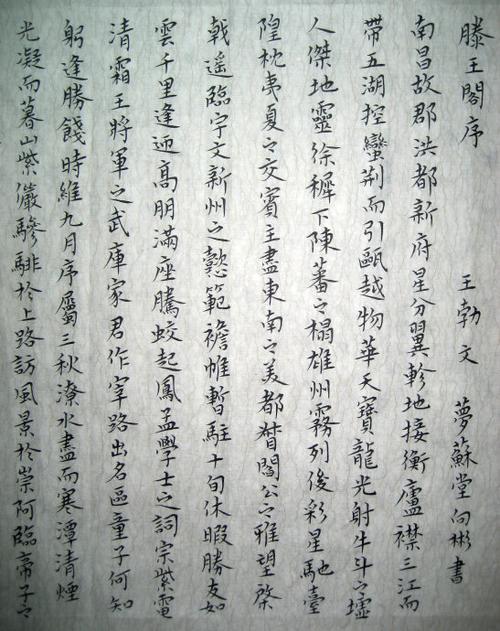 滕王閣序 王勃文 夢蘇堂向彬書
南昌故郡洪都新府星分翼軫地接衡廬襟三江而
帶五湖控蠻荊而引甌越物華天寶龍光射牛斗之墟
人傑地靈徐穉下陳蕃之榻雄州霧列俊彩星馳臺
隍枕夷夏之交賓主盡東南之美都督閻公之雅望棨
戟遙臨宇文新州之懿範襜帷暫駐十旬休暇勝友如
雲千里逢迎高朋滿座騰蛟起鳳孟學士之詞宗紫電
清霜王將軍之武庫家君作宰路出名區童子何知
躬逢勝餞時維九月序屬三秋潦水盡而寒潭清煙
光凝而暮山紫儼驂騑於上路訪風景於崇阿臨帝子之